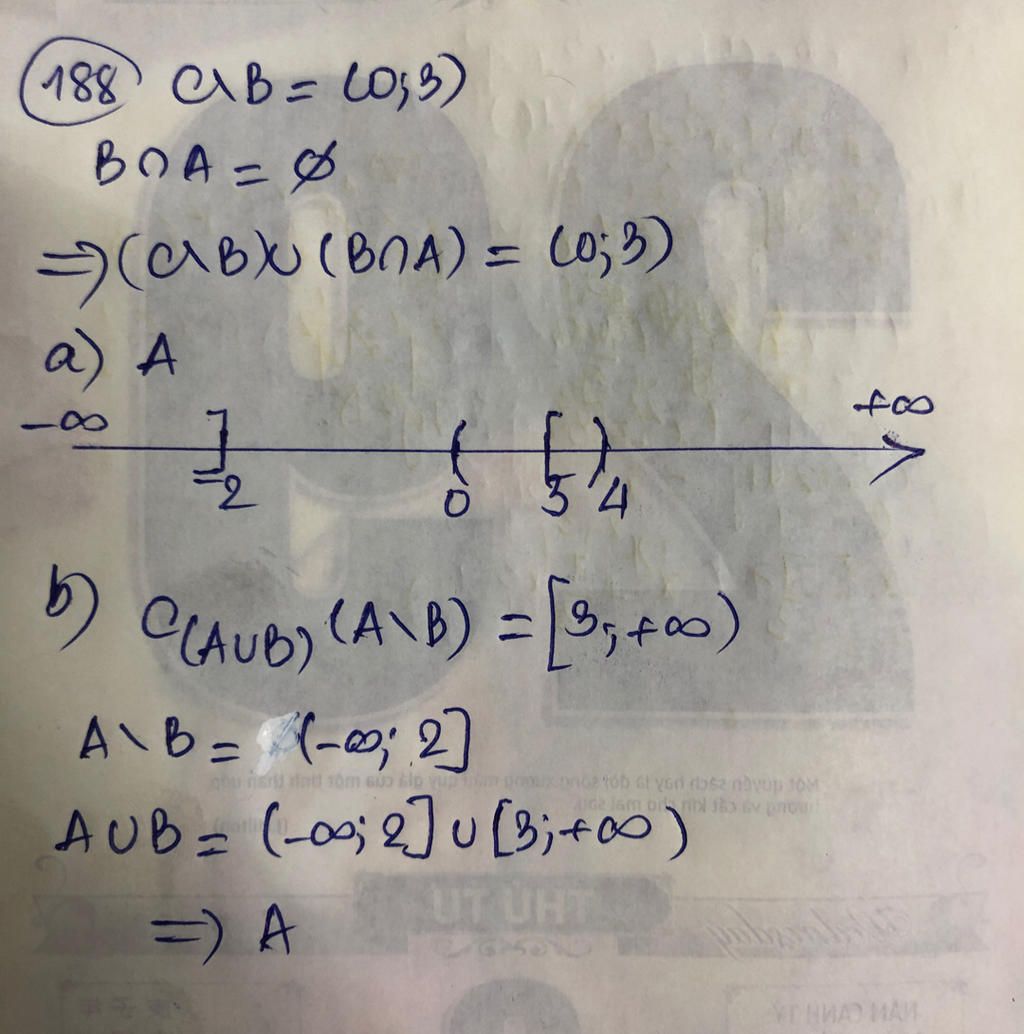 188 C\B = (0;3)
B∩A = ∅
=> (C\B)∪(B∩A) = (0;3)
a) A
-∞ ] ( [ ) +∞
-2 0 3 4
b) C(A∪B) (A\B) = [3;+∞)
A\B = (-∞; 2]
A∪B = (-∞; 2] ∪ [3;+∞)
=> A